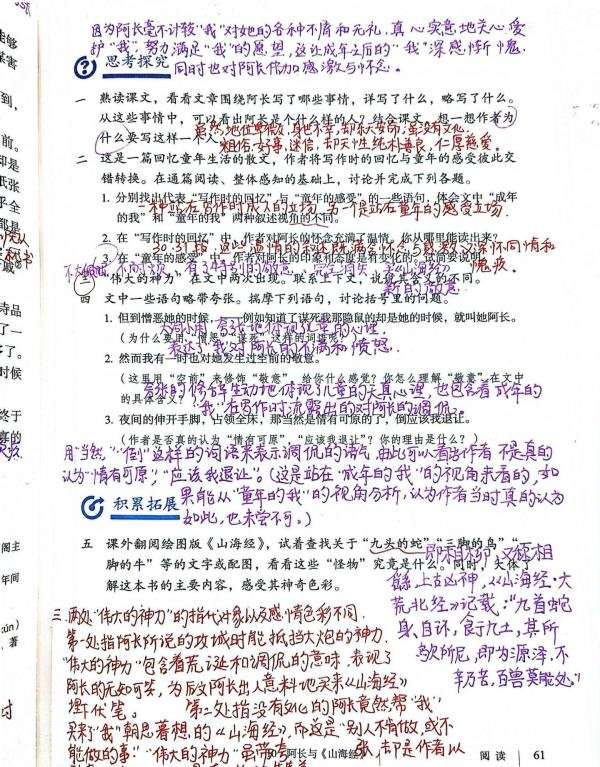 因为阿长毫不计较“我”对她的各种不屑和无礼，真心实意地关心、爱
护“我”，努力满足“我”的愿望，这让成年之后的“我”深感忏愧
思考探究
同时也对阿长倍加感激与怀念。
一 熟读课文，看看文章围绕阿长写了哪些事情，详写了什么，略写了什么。
从这些事情中，可以看出阿长是个什么样的人？结合课文，想一想作者为
什么要写这样一个人。
虽然地位卑微，身世不幸，却乐天安命，虽没有文化
粗俗、好事、迷信，却天性纯朴善良，仁厚慈爱。
二 这是一篇回忆童年生活的散文，作者将写作时的回忆与童年的感受彼此交
错转换。在通篇阅读、整体感知的基础上，讨论并完成下列各题。
1. 分别找出代表“写作时的回忆”与“童年的感受”的一些语句，体会文中“成年
的我”和“童年的我”两种叙述视角的不同。
一种站在写作时成人的立场，另一个是站在童年的感受立场
2. 在“写作时的回忆”中，作者对阿长的怀念充满了温情，你从哪里能读出来？
3. 在“童年的感受”中，作者对阿长的印象和态度是有变化的，试简要说明。
三 “伟大的神力”在文中两次出现。联系上下文，说说其含义的不同。
新的敬意
四 文中一些语句略带夸张。揣摩下列语句，讨论括号里的问题。
1. 但到憎恶她的时候，——例如知道了谋死我那隐鼠的却是她的时候，就叫她阿长。
大词小用，夸张地体现儿童的心理，
（为什么要用“憎恶”“谋死”这样的词语呢？）
表达了我对阿长的不满和愤怒.
2. 然而我有一时也对她发生过空前的敬意。
（这里用“空前”来修饰“敬意”，给你什么感觉？你怎么理解“敬意”在文中
的具体含义？）
夸张的修辞生动地体现了儿童的天真心理，也包含着成年的
“我”在写作时流露出的对阿长的调侃。
3. 夜间的伸开手脚，占领全床，那当然是情有可原的了，倒应该我退让。
（作者是否真的认为“情有可原”，“应该我退让”？你的理由是什么？）
用“当然”、“倒”这样的词语来表示调侃的语气，由此可以看出作者不是真的
认为“情有可原”，“应该我退让”。（这是站在“成年的我”的视角来看的，如
积累拓展
果能从“童年的我”的视角分析，认为作者当时真的认为
如此，也未尝不可。）
五 课外翻阅绘图版《山海经》，试着查找关于“九头的蛇”“三脚的鸟”“一
脚的牛”等的文字或配图，看看这些“怪物”究竟是什么。同时，大体了
解这本书的主要内容，感受其神奇色彩。
即相柳，又称相
繇，上古凶神，《山海经·大
荒北经》记载：“九首蛇
身，自环，食于九土，其所
歍所尼，即为源泽，不
辛乃苦，百兽莫能处。”
三、两处“伟大的神力”的指代对象以及感情色彩不同.
第一处指阿长所说的攻城时能抵挡大炮的神力.
“伟大的神力”包含着荒诞和调侃的意味，表现了
阿长的无知可笑，为后文阿长出人意料地买来《山海经》
埋伏笔。 第二处指没有文化的阿长竟然帮“我”
买来了“我”朝思暮想的《山海经》，而这是“别人不肯做，或不
能做的事”“伟大的神力”虽带夸张，却是作者以
阿长与《山海经》
阅读 61